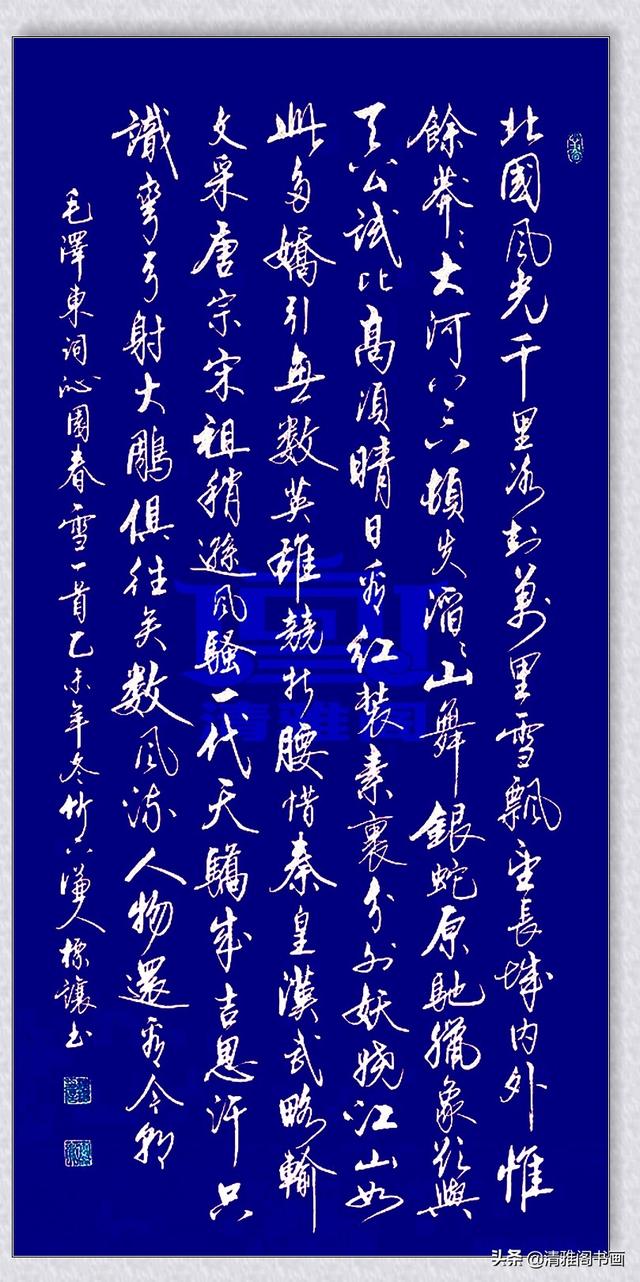 北國風光千里冰封萬里雪飄望長城内外惟
餘莽々大河上下頓失滔々山舞銀蛇原馳臘象欲與
天公試比高須晴日看紅裝素裹分外妖嬈江山如
此多嬌引無數英雄競折腰惜秦皇漢武略輸
文采唐宗宋祖稍遜風騷一代天驕成吉思汗只
識彎弓射大鵰俱往矣數風流人物還看今朝
毛澤東詞沁園春雪一首乙未年冬竹下謙人標讓书
清雅阁
头条 @清雅阁书画